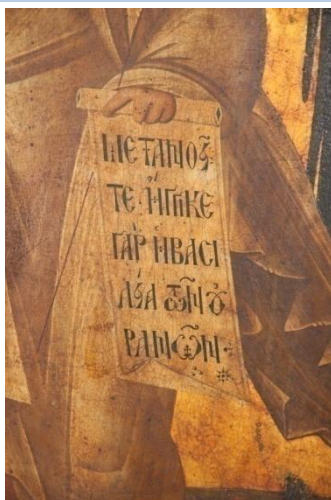 ΜΕΤΑΝΟΕῖ
ΤΕ ἬΓΓΙΚΕ
ΓᾺΡ Ἡ ΒΑϹΙ
ΛΕΊΑ ΤῶΝ Ȣ
ΡΑΝῶΝ